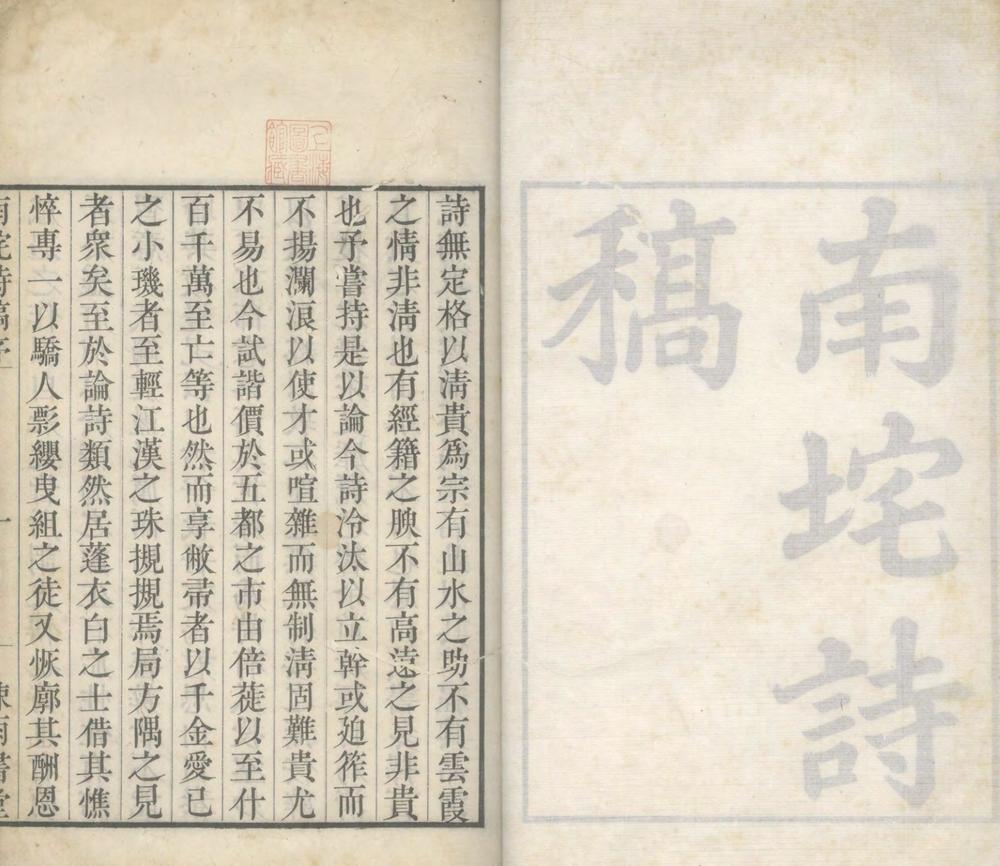 南垞詩
稿
上海
圖書
館藏
詩無定格以淸貴爲宗有山水之助不有雲霞
之情非淸也有經籍之腴不有高遠之見非貴
也予嘗持是以論今詩泠汰以立幹或廹筰而
不揚瀾浪以使才或喧雜而無制淸固難貴尤
不易也今試諧價於五都之市由倍蓰以至什
百千萬至亡等也然而享敝帚者以千金愛已
之小璣者至輕江漢之珠摫摫焉局方隅之見
者衆矣至於論詩類然居蓬衣白之士借其憔
悴專一以驕人彯纓曳組之徒又恢廓其酬恩
南垞詩稿序 一